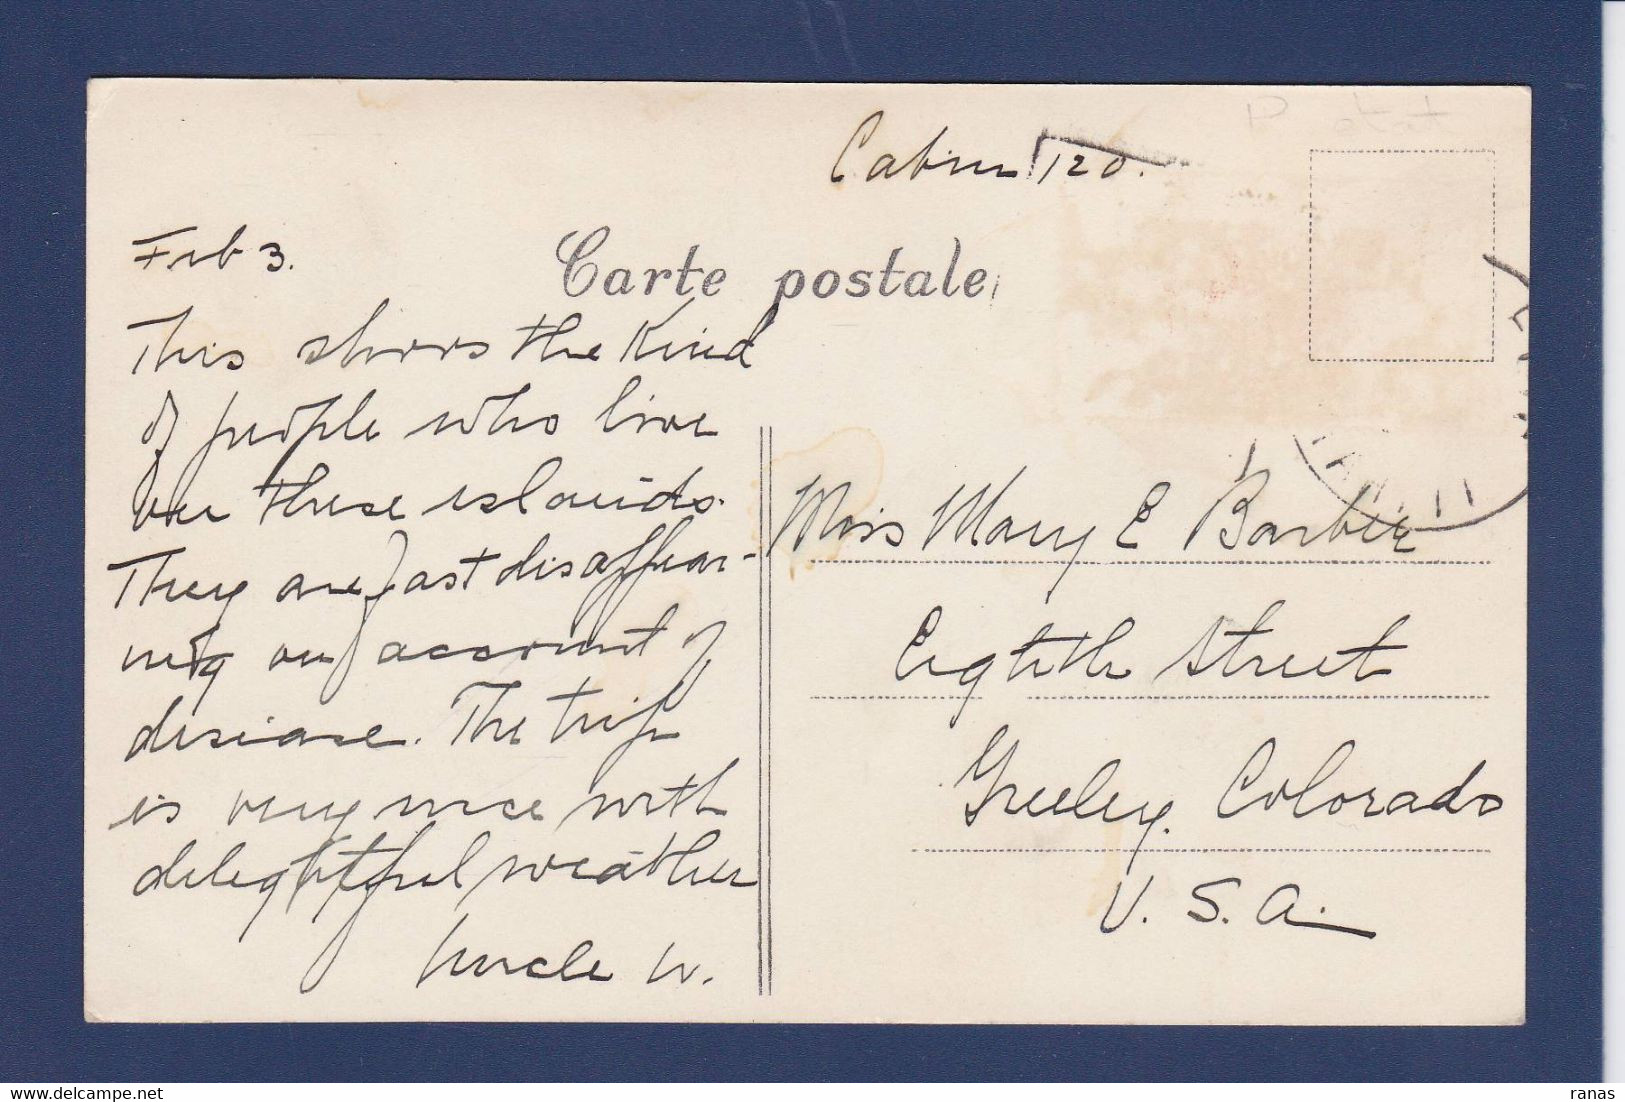 Cabin 120.
Feb 3.
Carte postale
This shows the Kind
of people who live
on these islands.
They are fast disappear-
ing on account of
disease. The trip
is very nice with
delightful weather
Uncle W.
Miss Mary E Barber
Eighth Street
Greeley. Colorado
U. S. A.
ranas